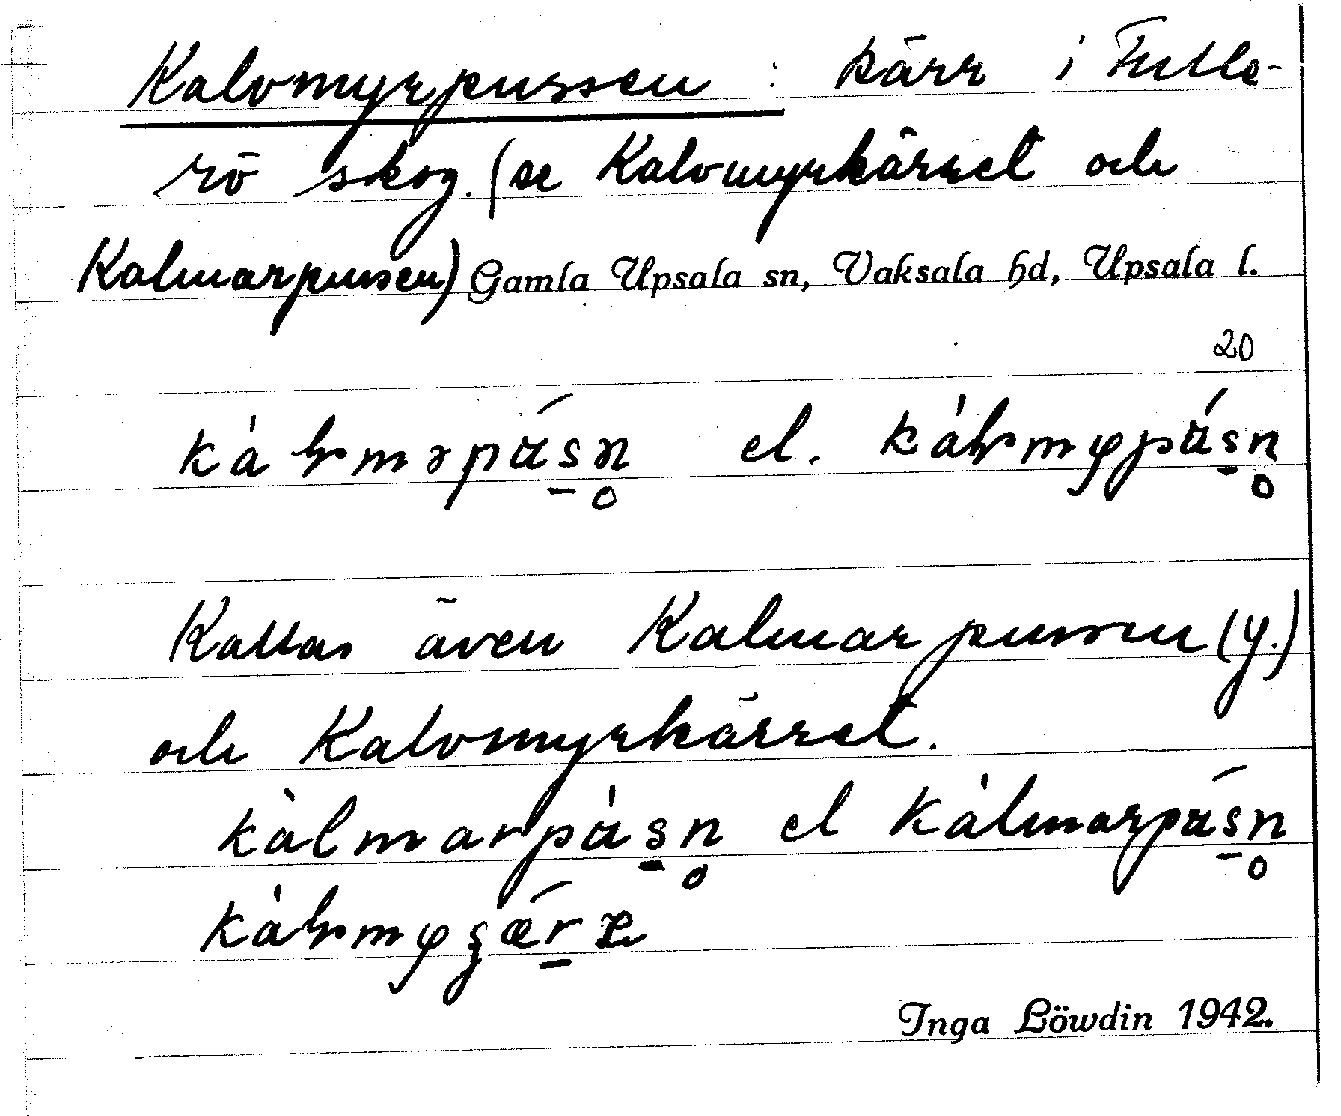 Kalvmyrpussen : kärr i Fulle-
rö skog. (se Kalvmyrkärret och
Kalmarpussen) Gamla Upsala sn, Vaksala hd, Upsala l.
20
el.
Kallas även Kalmarpussen (y.)
och Kalvmyrkärret.
kàlmarpàsn el kálmarpásn
Inga Löwdin 1942.